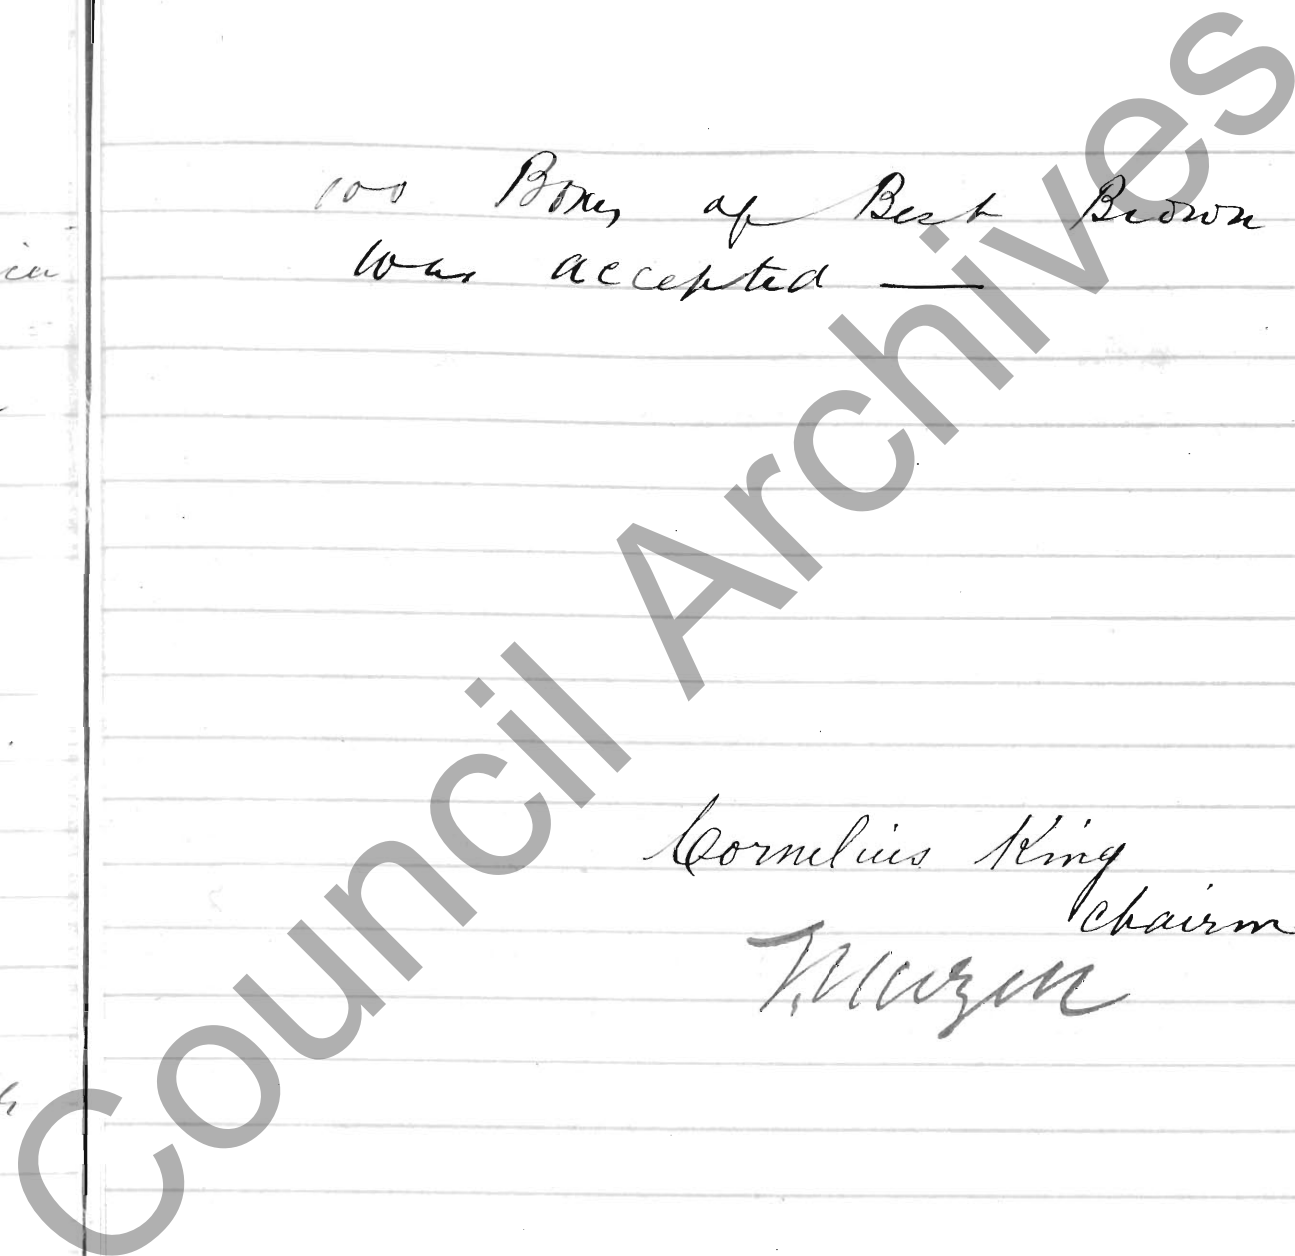 100 Boxes of Best Brown
was accepted —
Cornelius King
chairm
Council Archives